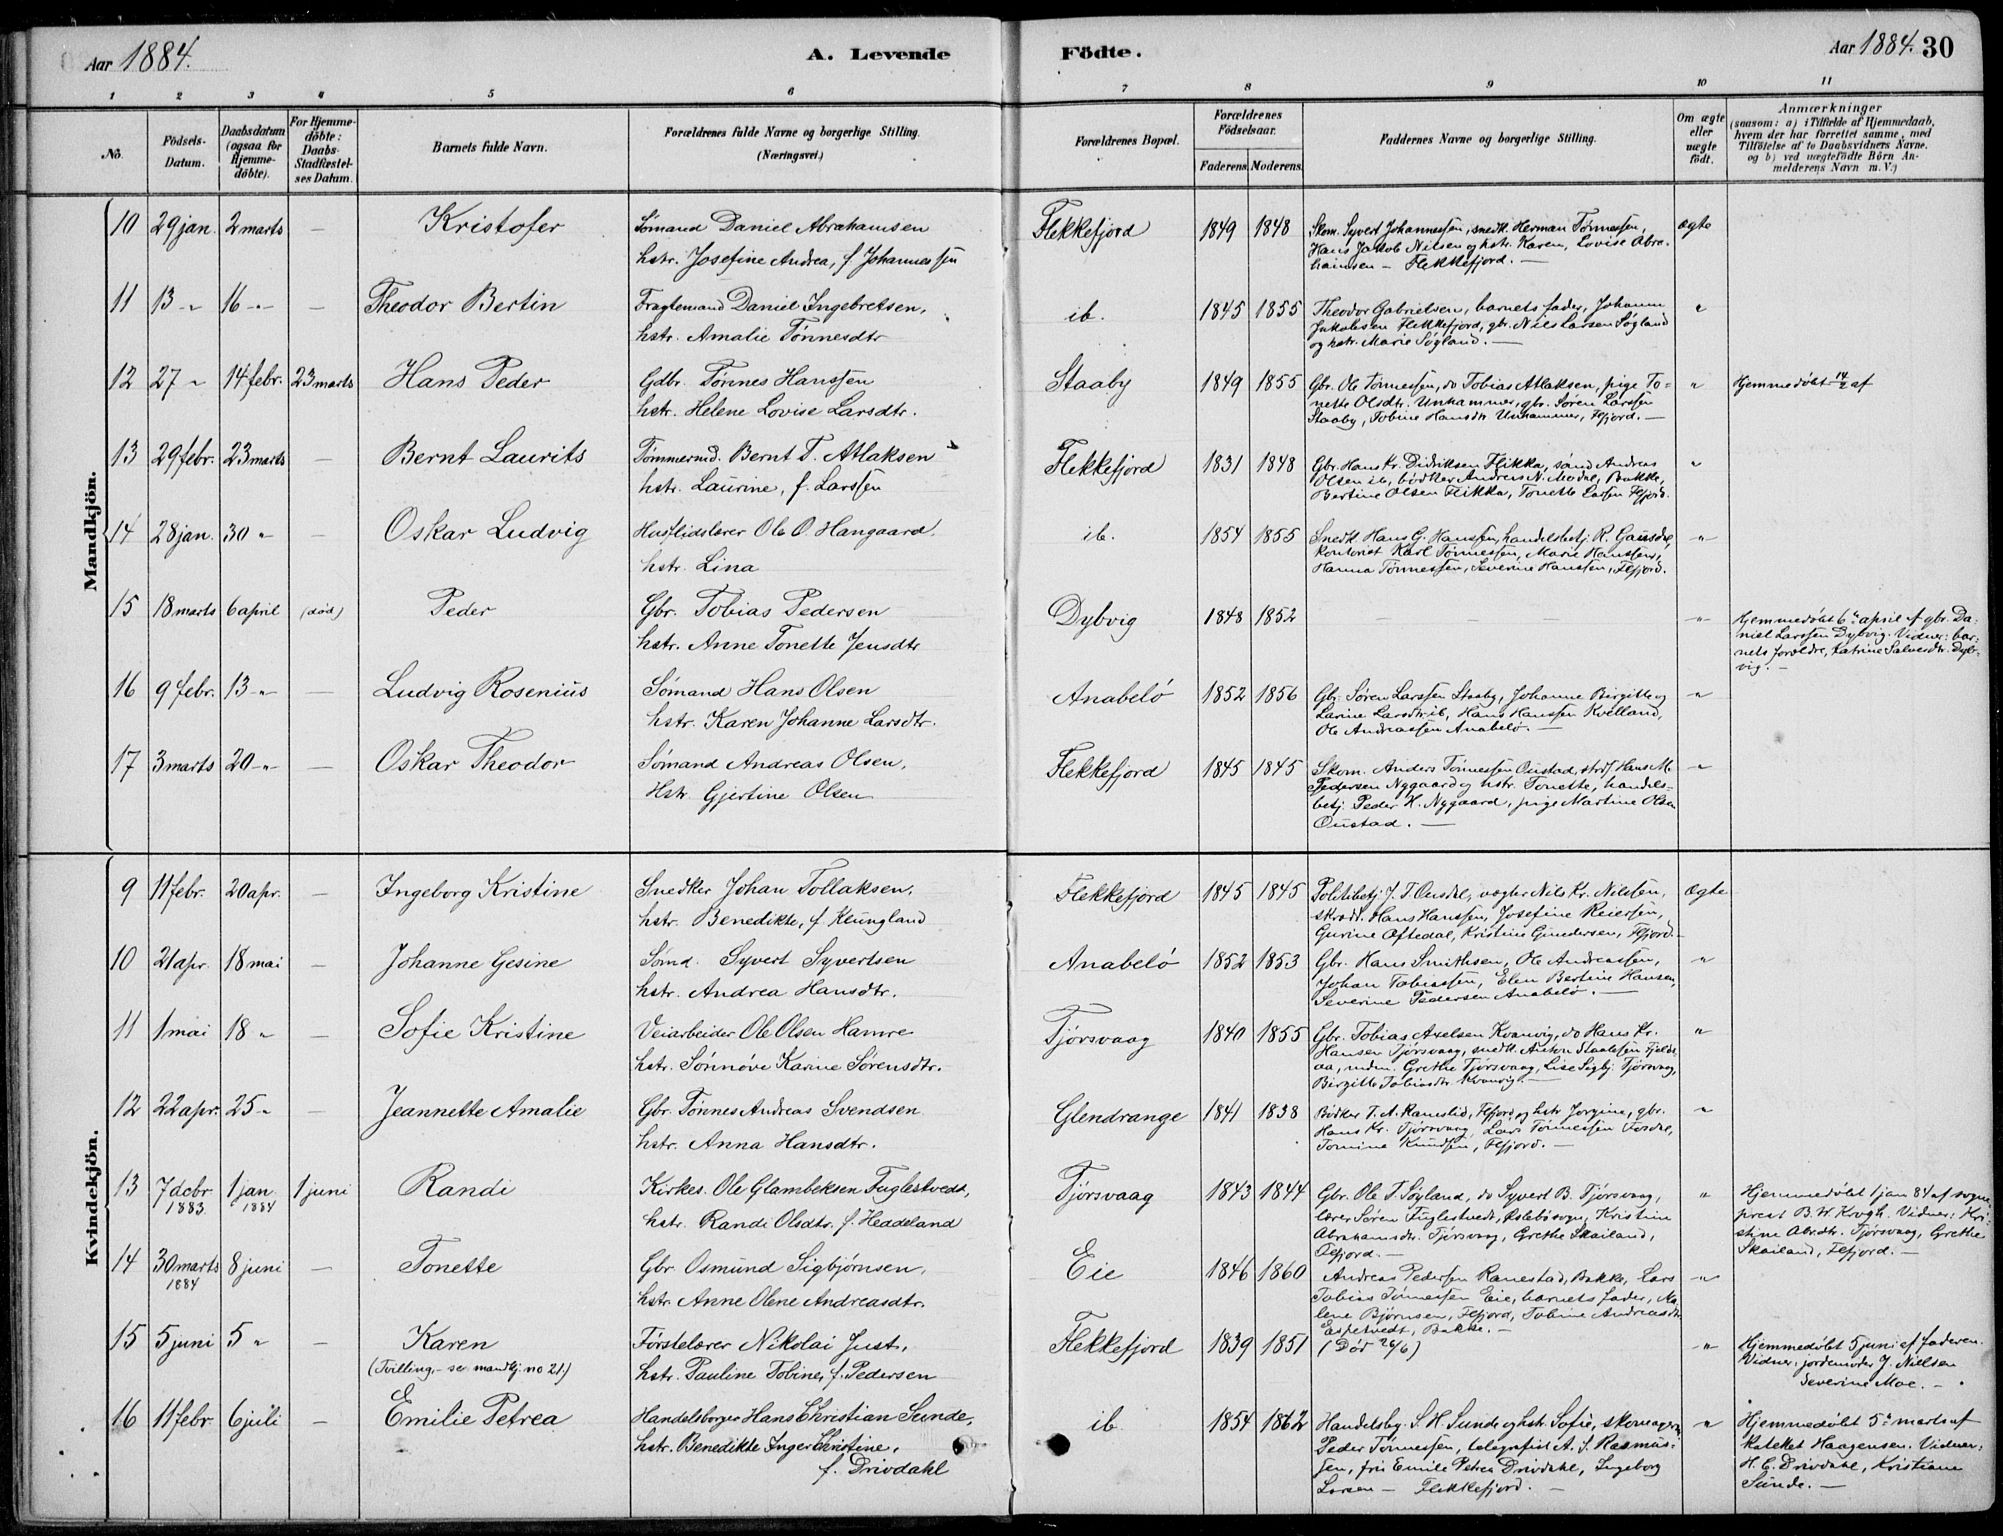 Aar 1884.
A. Levende
Födte.
Aar 1884. 30
1 2 3 4 5 6 7 8 9 10 11
No.
Födsels-
Datum.
Daabsdatum
(ogsaa for
Hjemme-
döbte).
For Hjemme-
döbte:
Daabs-
Stadfæstel-
ses Datum.
Barnets fulde Navn.
Forældrenes fulde Navne og borgerlige Stilling.
(Næringsvei.)
Forældrenes Bopæl.
Forældrenes
Födselsaar.
Faderens. Moderens.
Faddernes Navne og borgerlige Stilling.
Om ægte
eller
uægte
födt.
Anmærkninger
(saasom: a) i Tilfælde af Hjemmedaab,
hvem der har forrettet samme, med
Tilföielse af to Daabsvidners Navne.
og b) ved uægtefödte Börn An-
melderens Navn m. V.)
Mandkjön.
10 29 jan. 2 marts — Kristofer
Sømand Daniel Abrahamsen
hstr. Josefine Andrea, f. Johannessen
Flekkefjord 1849 1848
Skom. Syvert Johannessen, snedk. Herman Tønnessen,
Hans Jakob Nilsen og hstr. Karen, Lovise Abra-
hamsen — Flekkefjord. —
ægte
11 13 " 16 " — Theodor Bertin
Fragtemand Daniel Ingebretsen,
hstr. Amalie Tønnesdtr
ib. 1845 1855
Theodor Gabrielsen, barnets fader, Johanne
Jakobsen Flekkefjord, gbr. Nils Larsen Søgland
og hstr. Marie Søgland. —
"
12 27 " 14 febr. 23 marts Hans Peder
Gdbr. Tønnes Hanssen
hstr. Helene Lovise Larsdtr.
Staaby 1849 1855
Gbr. Ole Tønnessen, do Tobias Atlaksen, pige To-
nette Olsdtr. Unhammer, gbr. Søren Larssen
Staaby, Tobine Hansdtr Unhammer, Ffjord. —
"
Hjemmedøbt 14/2 af
13 29 febr. 23 marts — Bernt Laurits
Tømmermd. Bernt T. Atlaksen
hstr. Laurine, f. Larssen
Flekkefjord 1831 1848
Gbr. Hans Kr. Didriksen Flikka, sømd Andreas
Olsen ib, bødker Andreas N. Modal, Bakke,
Bertine Olsen Flikka, Tonette Larsen Ffjord.
"
14 28 jan. 30 " — Oskar Ludvig
Husflidslærer Ole O. Haugaard,
hstr. Lina
ib. 1854 1855
Snedk. Hans G. Hanssen, handelsbetj. R. Gausdal,
kontorist Karl Tønnessen, Marie Hanssen,
Hanna Tønnessen, Severine Hanssen, Ffjord.
"
15 18 marts 6 april (død) Peder
Gbr. Tobias Pedersen
hstr. Anne Tonette Jensdtr
Dybvig 1848 1852
— — — —
"
Hjemmedøbt 6te april af gbr. Da-
niel Larssen Dybvig. Vidner: bar-
nets forældre, Katrine Salvesdtr. Dyb-
vig. —
16 9 febr. 13 " — Ludvig Rosenius
Sømand Hans Olsen
hstr. Karen Johanne Larsdtr.
Anabelø 1852 1856
Gbr. Søren Larssen Staaby, Johanne Birgitte og
Larine Larsdtr ib, Hans Hanssen Kvelland,
Ole Andreassen Anabelø. —
"
17 3 marts 20 " — Oskar Theodor
Sømand Andreas Olsen,
Hstr. Gjertine Olsen
Flekkefjord 1845 1845
Skom. Anders Tønnessen Oustad, Hans M.
Pedersen Nygaard og hstr. Tonette, handels-
betj. Peder H. Nygaard, pige Martine Olsen
Oustad. —
"
Kvindekjön.
9 11 febr. 20 apr. — Ingeborg Kristine
Snedker Johan Tollaksen,
hstr. Benedikte, f. Klungland
Flekkefjord 1845 1845
Politibetj. J. T. Ousdal, vægter Nils Kr. Nilssen,
skrædd. Hans Hanssen, Josefine Reiersen,
Gurine Oftedal, Kristine Gundersen, Ffjord. —
Ægte
10 21 apr. 18 mai — Johanne Gesine
Sømd. Syvert Syvertsen
hstr. Andrea Hansdtr.
Anabelø 1852 1853
Gbr. Hans Smithsen, Ole Andreassen,
Johan Tobiassen, Elen Bertine Hansen,
Severine Pedersen Anabelø. —
"
11 1 mai 18 " — Sofie Kristine
Veiarbeider Ole Olsen Hamre
hstr. Sønnøve Karine Sørensdtr.
Tjørsvaag 1840 1855
Gbr. Tobias Axelsen Kvanvig, do Hans Kr.
Hansen Tjørsvaag, snedk. Anton Staalesen Fjelds-
aa, Grethe Tjørsvaag, Lise Sigbj. Tjørsvaag,
Birgitte Tobiasdtr. Kvanvig. —
"
12 22 apr. 25 " — Jeannette Amalie
Gbr. Tønnes Andreas Svendsen
hstr. Anna Hansdtr.
Glendrange 1841 1838
Bødker T. A. Ramslid, Ffjord og hstr Jorgine, gbr.
Hans Kr. Tjørsvaag, Lars Tønnessen
Tomine Knudsen, Ffjord. —
"
13 7 dcbr 1883. 1 jan. 1884 1 juni Randi
Kirkes. Ole Glambeksen Fuglestvedt,
hstr. Randi Olsdtr. f. Heddeland
Tjørsvaag 1843 1844
Gbr. Ole T. Søyland, do Syvert B. Tjørsvaag,
lærer Søren Fuglestvedt, Øslebø sogn, Kristine
Abrahamsdtr. Tjørsvaag, Grethe Skailand,
Ffjord. —
"
Hjemmedøbt 1 jan 84 af sogne-
prest B. W. Krogh. Vidner: Kri-
stine Abr.dtr. Tjørsvaag, Grethe
Skailand, Ffjord. —
14 30 marts 1884 8 juni — Tonette
Gbr. Osmund Sigbjørnsen,
hstr. Anne Olene Andreasdtr.
Eie 1846 1860
Andreas Pedersen Ranestad, Bakke, Lars
Tobias Tønnessen Eie, barnets fader, Ma-
lene Bjørnsen, Ffjord, Tobine Andreasdtr
Espetvedt, Bakke. —
"
15 5 juni 5 " — Karen
(Tvilling, — se mandkj. no 21.)
Førstelærer Nikolai Just,
hstr. Pauline Tobine, f. Pedersen
Flekkefjord 1839 1851
(Død 26/6)
"
Hjemmedøbt 5 juni af faderen.
Vidner: jordemoder J. Nielsen
Severine Moe. —
16 11 febr. 6 juli — Emilie Petrea
Handelsborger Hans Christian Sunde,
hstr. Benedikte Inger Christine,
f. Drivdahl
ib. 1854 1862
Handelsbg. S. H. Sunde og hstr. Sofie, skomager
Peder Tønnessen, telegrafist A. S. Rasmus-
sen, frk Emilie Petrea Drivdahl, Ingeborg
Larsen — Flekkefjord. —
"
Hjemmedøbt 5te marts af
Kateket Haagensen. Vidner:
H. C. Drivdahl, Kristiane
Sunde. —